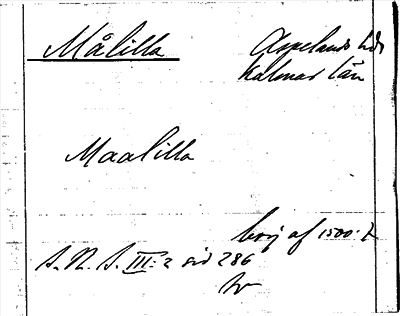 Målilla
Aspelands hd
Kalmar län
Maalilla
börj af 1500-t
S. R. S. III: 2 sid 286